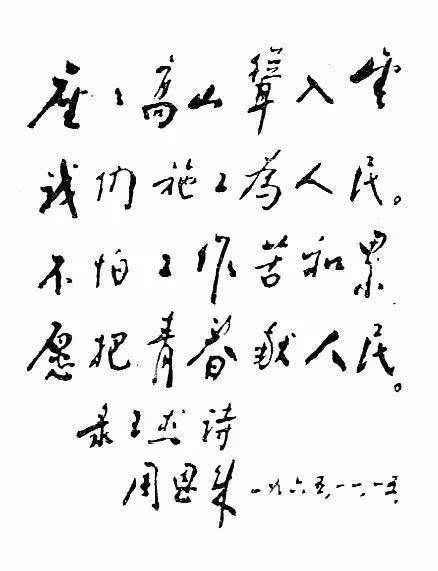 座々高山耸入雲
我们施工為人民。
不怕工作苦和累
愿把青春献人民。
录王杰诗
周恩来 一九六五、一一、一五、